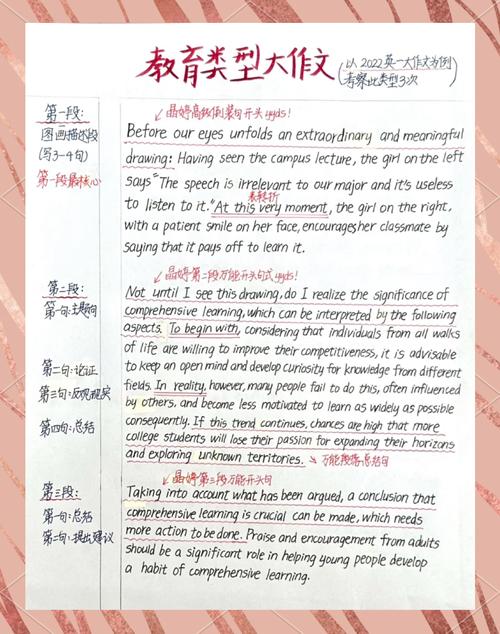 教育类型大作文
(以2022英一大作文为例
考察此类型3次)
第一段:
图画描述段
(写3-4句)
第一段最核心
晶婷高级倒装句开头yyds!
Before our eyes unfolds an extraordinary and meaningful
drawing: Having seen the campus lecture, the girl on the left
says "The speech is irrelevant to our major and it's useless
to listen to it." At this very moment, the girl on the right,
表转折
with a patient smile on her face, encourages her classmate by
saying that it pays off to learn it.
第二段:
第一句:主题句
第二句:论证
第三句:反观现实
第四句:总结
晶婷第二段万能开头句式yyds!
Not until I see this drawing, do I realize the significance of
comprehensive learning, which can be interpreted by the following
aspects. To begin with, considering that individuals from all walks
of life are willing to improve their competitiveness, it is advisable
to keep an open mind and develop curiosity for knowledge from different
fields. In reality, however, many people fail to do this, often influenced
by others, and become less motivated to learn as widely as possible
consequently. If this trend continues, chances are high that more
college students will lose their passion for expanding their horizons
and exploring unknown territories.
万能段落总结句
第三段:
第一句:总结
第二句:提出建议
晶婷第三段万能开头句
Taking into account what has been argued, a conclusion that
comprehensive learning is crucial can be made, which needs
more action to be done. Praise and encouragement from adults
should be a significant role in helping young people develop
a habit of comprehensive learning.